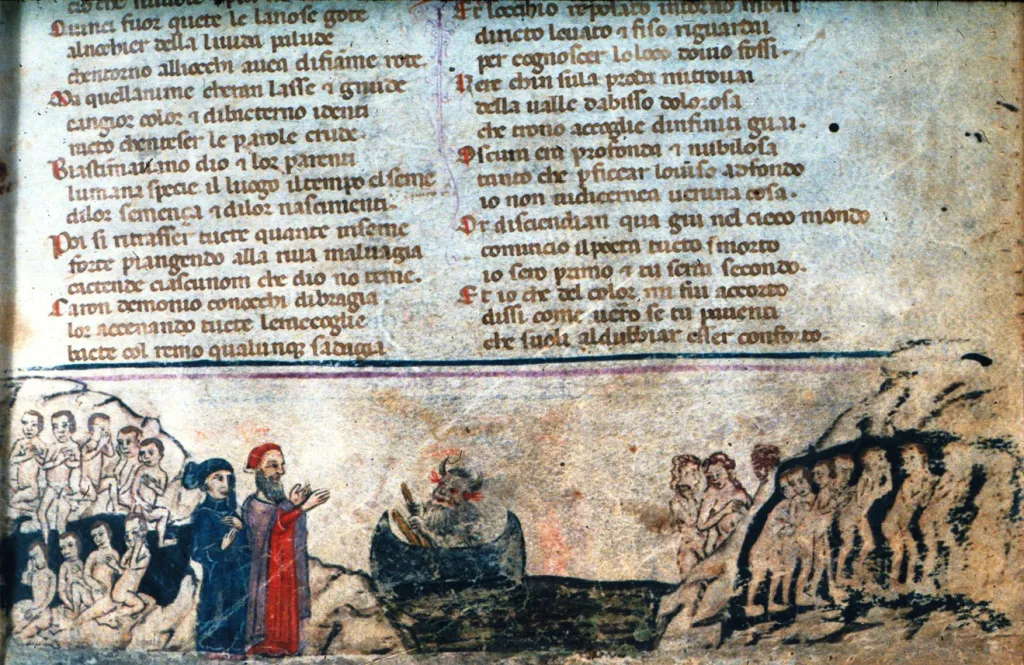 Quinci fuor quete le lanose gote
alnochier della liuida palude
chentorno alliocchi auea difiame rote.
Ma quellanime cheran lasse & gnude
cangior color & dibacterno identi
racto chenteser le parole crude.
Biastimauamo dio & lor parenti
lumana specie il luogo iltempo el seme
dilor semença & dilor nascimenti.
Poi si ritrasser tucte quante inseme
forte piangendo alla riua maluagia
cactende ciascunom che dio no teme.
Caron demonio conocchi dibragia
lor accenando tucte leraccoglie
bacte col remo qualunq; sadagia
Et locchio riposato intorno mossi
diricto leuato & fiso riguardai
per cognoscer lo loco douio fossi.
Vero chin sula proda mitrouai
della ualle dabisso dolorosa
che trono accoglie dinfiniti guai.
Oscura era profonda & nubilosa
tanto che pficcar louiso adfondo
io non uidicernea ueruna cosa.
Or discendian qua giu nel cieco mondo
comincio ilpoeta tucto smorto
io sero primo & tu serai secondo.
Et io che del color mi fui accorto
dissi come uero se tu pauenti
che suoli aldubbiar esser conforto.